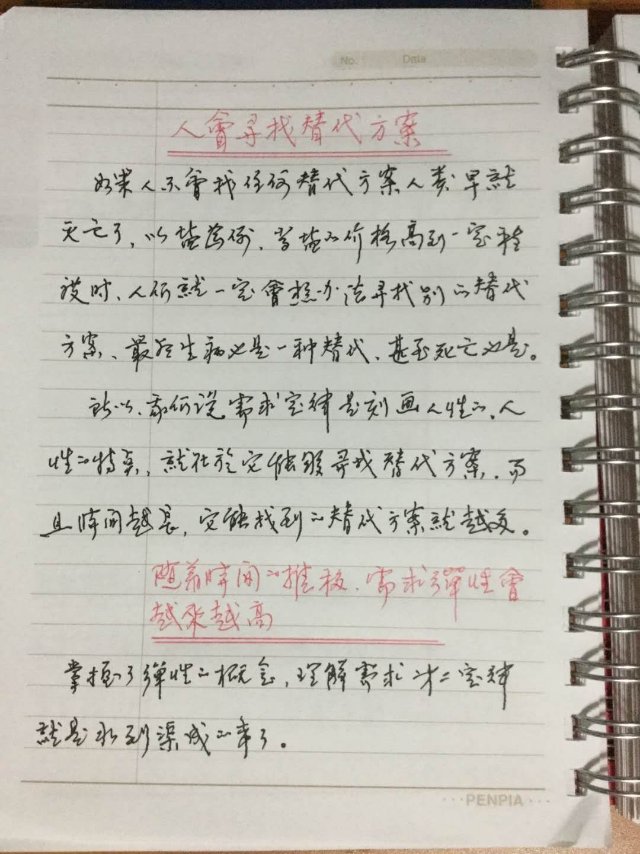 No. Date
人會尋找替代方案
如果人不會找任何替代方案人类早就
灭亡了,以盐為例,当盐的价格高到一定程
度时、人们就一定會想办法尋找别的替代
方案、最後生病也是一种替代、甚至死亡也是。
所以、我们说需求定律是刻画人性的、人
性的特点,就在於它能够尋找替代方案、而
且时间越長,它能找到的替代方案就越多。
随着时间的推移、需求弹性會
越來越高
掌握了弹性的概念,理解需求第二定律
就是水到渠成的事了。
PENPIA